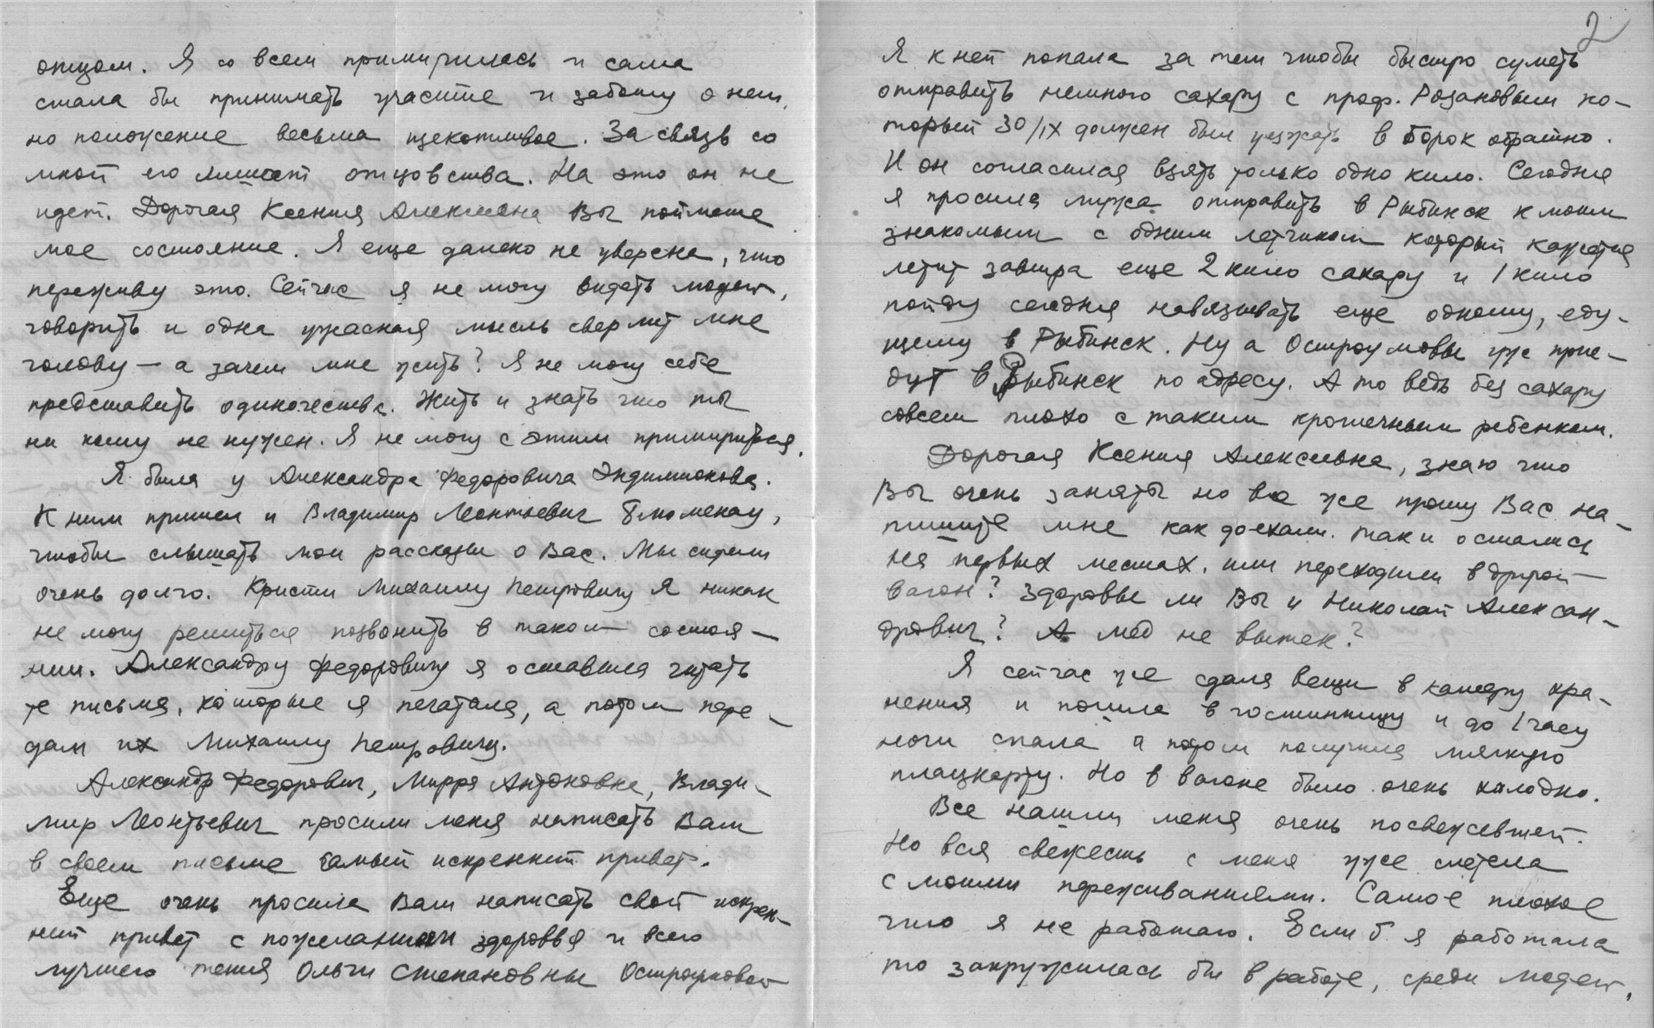 отцом. Я со всем примирилась и сама
стала бы принимать участие и заботу о нем,
но положение весьма щекотливое. За связь со
мной его лишает отцовства. На это он не
идет. Дорогая Ксения Алексеевна Вы поймете
мое состояние. Я еще далеко не уверена, что
переживу это. Сейчас я не могу видеть людей,
говорить и одна ужасная мысль сверлит мне
голову — а зачем мне жить? Я не могу себе
представить одиночества. Жить и знать что ты
ни кому не нужен. Я не могу с этим примириться.
Я была у Александра Федоровича
К ним пришел и Владимир Леонтьевич
чтобы слышать мои рассказы о Вас. Мы сидели
очень долго. Кристи Михаилу Петровичу я никак
не могу решиться позвонить в таком состоя-
нии. Александру Федоровичу я оставила читать
те письма, которые я печатала, а потом пере-
дам их Михаилу Петровичу.
Александр Федорович, Мирра Антоновна, Влади-
мир Леонтьевич просили меня написать Вам
в своем письме самый искренний привет.
Еще очень просила Вам написать свой искрен-
ний привет с пожеланием здоровья и всего
лучшего Ольги Степановны Остроумовой
2
Я к ней попала за тем чтобы быстро суметь
отправить немного сахару с проф. Розановым ко-
торый 30/IX должен был уезжать в Борок обратно.
И он согласился взять только одно кило. Сегодня
я просила мужа отправить в Рыбинск к моим
знакомым с одним летчиком который кажется
летит завтра еще 2 кило сахару и 1 кило
пойду сегодня навязывать еще одному, еду-
щему в Рыбинск. Ну а Остроумовы уж прие-
дут в Рыбинск по адресу. А то ведь без сахару
совсем плохо с таким крошечным ребенком.
Дорогая Ксения Алексеевна, знаю что
Вы очень заняты но все же прошу Вас на-
пишите мне как доехали. Так и остались
на первых местах. или переходили в другой
вагон? Здоровы ли Вы и Николай Алексан-
дрович? А мед не вытек?
Я сейчас же сдала вещи в камеру хра-
нения и пошла в гостинницу и до 1 часу
ночи спала а потом получила мягкую
плацкарту. Но в вагоне было очень холодно.
Все нашли меня очень посвежевшей.
Но вся свежесть с меня уже слетела
с моими переживаниями. Самое плохое
что я не работаю. Если б я работала
то закружилась бы в работе, среди людей,